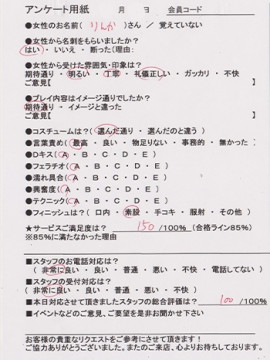 アンケート用紙　月　日　会員コード
●女性のお名前（りんか）さん ／ 覚えていない
●女性から名刺をもらいましたか？
はい ・ いいえ ・ 断った（理由：
●女性から受けた雰囲気・印象は？
期待通り ・ 明るい ・ 丁寧 ・ 礼儀正しい ・ ガッカリ ・ 不快
ご意見【　】
●プレイ内容はイメージ通りでしたか？
期待通り ・ イメージと違った
ご意見【　】
●コスチュームは？（ 選んだ通り ・ 選んだのと違う ）
●言葉責め（ 最高 ・ 良い ・ 物足りない ・ 事務的 ・ 無かった ）
●Dキス（ A ・ B ・ C ・ D ・ E ）
●フェラチオ（ A ・ B ・ C ・ D ・ E ）
●濡れ具合（ A ・ B ・ C ・ D ・ E ）
●興奮度（ A ・ B ・ C ・ D ・ E ）
●テクニック（ A ・ B ・ C ・ D ・ E ）
●フィニッシュは？（ 口内 ・ 素股 ・ 手コキ ・ 服射 ・ その他 ）
★サービスご満足度は？　150／100％（合格ライン85％）
※85％に満たなかった理由
■スタッフのお電話対応は？
（ 非常に良い ・ 良い ・ 普通 ・ 悪い ・ 不快 ・ 電話してない ）
■スタッフの受付対応は？
（ 非常に良い ・ 良い ・ 普通 ・ 悪い ・ 不快 ）
■本日対応させて頂きましたスタッフの総合評価は？ 100／100％
■イベントなどのご意見、ご要望を是非お聞かせ下さい
お客様の貴重なリクエストをご参考にさせて頂きます！
ご協力ありがとうございました。またのご来店、心よりお待ちしております。